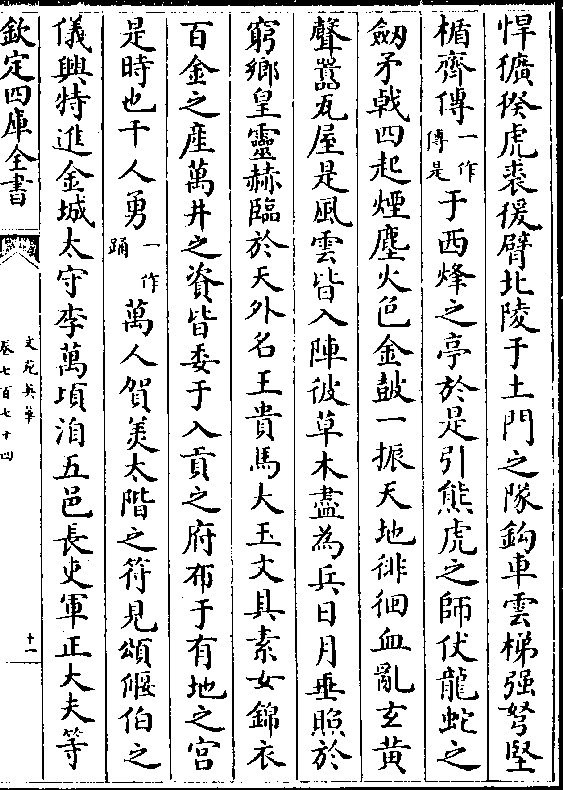 悍獷猰虎裘猨臂北陵于土門之隊鈎車雲梯强弩堅
楯齊傳一作傳是于西烽之亭於是引熊虎之師伏龍蛇之
劒矛戟四起煙塵火色金鼓一振天地徘徊血亂玄黄
聲嚣瓦屋是風雲皆入陣彼草木盡為兵日月垂照於
窮鄉皇靈赫臨於天外名王貴馬大玉文具素女錦衣
百金之産萬井之資皆委于入貢之府布于有地之宫
是時也千人勇一作踊萬人賀美太階之符見頌偃伯之
儀興特進金城太守李萬頃洎五邑長史軍正大夫等
欽定四庫全書
文苑英華
卷七百七十四
十一